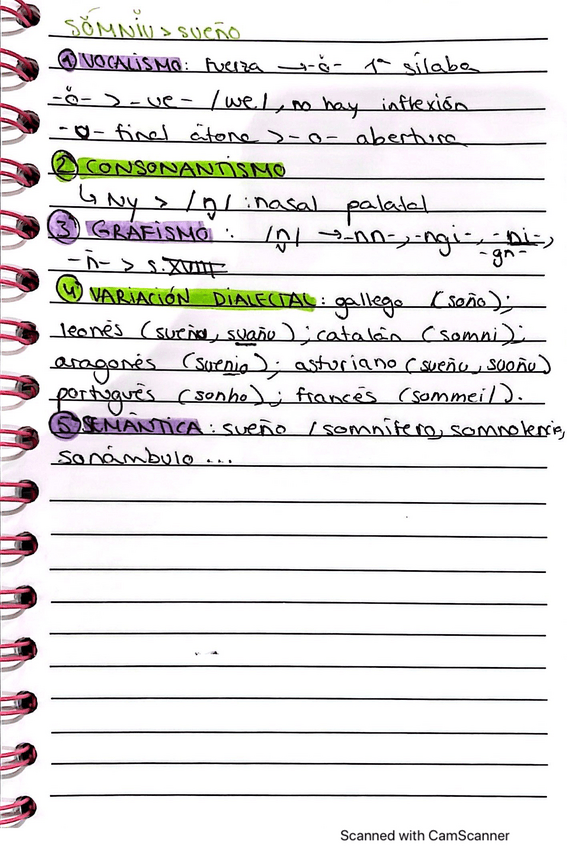 SŎMNIU > sueño
① VOCALISMO: fuerza → -ŏ- 1ª sílaba
-ŏ- > -ue- /we/, no hay inflexión
-u- final átona > -o- abertura
② CONSONANTISMO
↳ Ny > /ṇ/ : nasal palatal
③ GRAFISMO: /ṇ/ → -nn-, -ngi-, -ni-,
-gn-
-ñ- > s. XVIII
④ VARIACIÓN DIALECTAL: gallego (soño);
leonés (sueño, suaño); catalán (somni);
aragonés (suenio); asturiano (sueñu, suoñu)
portugués (sonho); francés (sommeil).
⑤ SEMÁNTICA: sueño / somnífero, somnolencia,
sonámbulo ...
Scanned with CamScanner